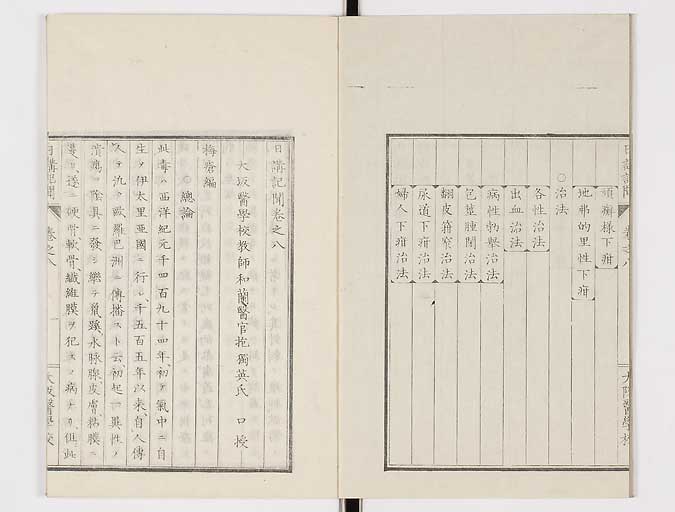 日講記聞
卷之八
大阪醫學校
頑癬樣下疳
地弗的里性下疳
○治法
各性治法
出血治法
病性勃擧治法
包莖腫閉治法
翻皮箝窄治法
尿道下疳治法
婦人下疳治法
日講記聞卷之八
大坂醫學校教師和蘭醫官越爾蔑嗹斯氏 口授
梅瘡編
○總論
此毒ハ西洋紀元千四百九十四年、初テ氣中ニ自
生シ伊太里亞國ニ行レ、千五百五年以來、自人傳
人ヲ汎ク歐羅巴洲ニ傳播スト云、初起ハ異性ノ
潰瘍、陰具ニ發シ繼テ鼠蹊、水脉腺、皮膚、粘膜ニ
蔓リ、遂ニ硬骨軟骨纖維膜ヲ犯スノ病ナリ、但此
日講記聞
卷之八
一
大坂醫學校